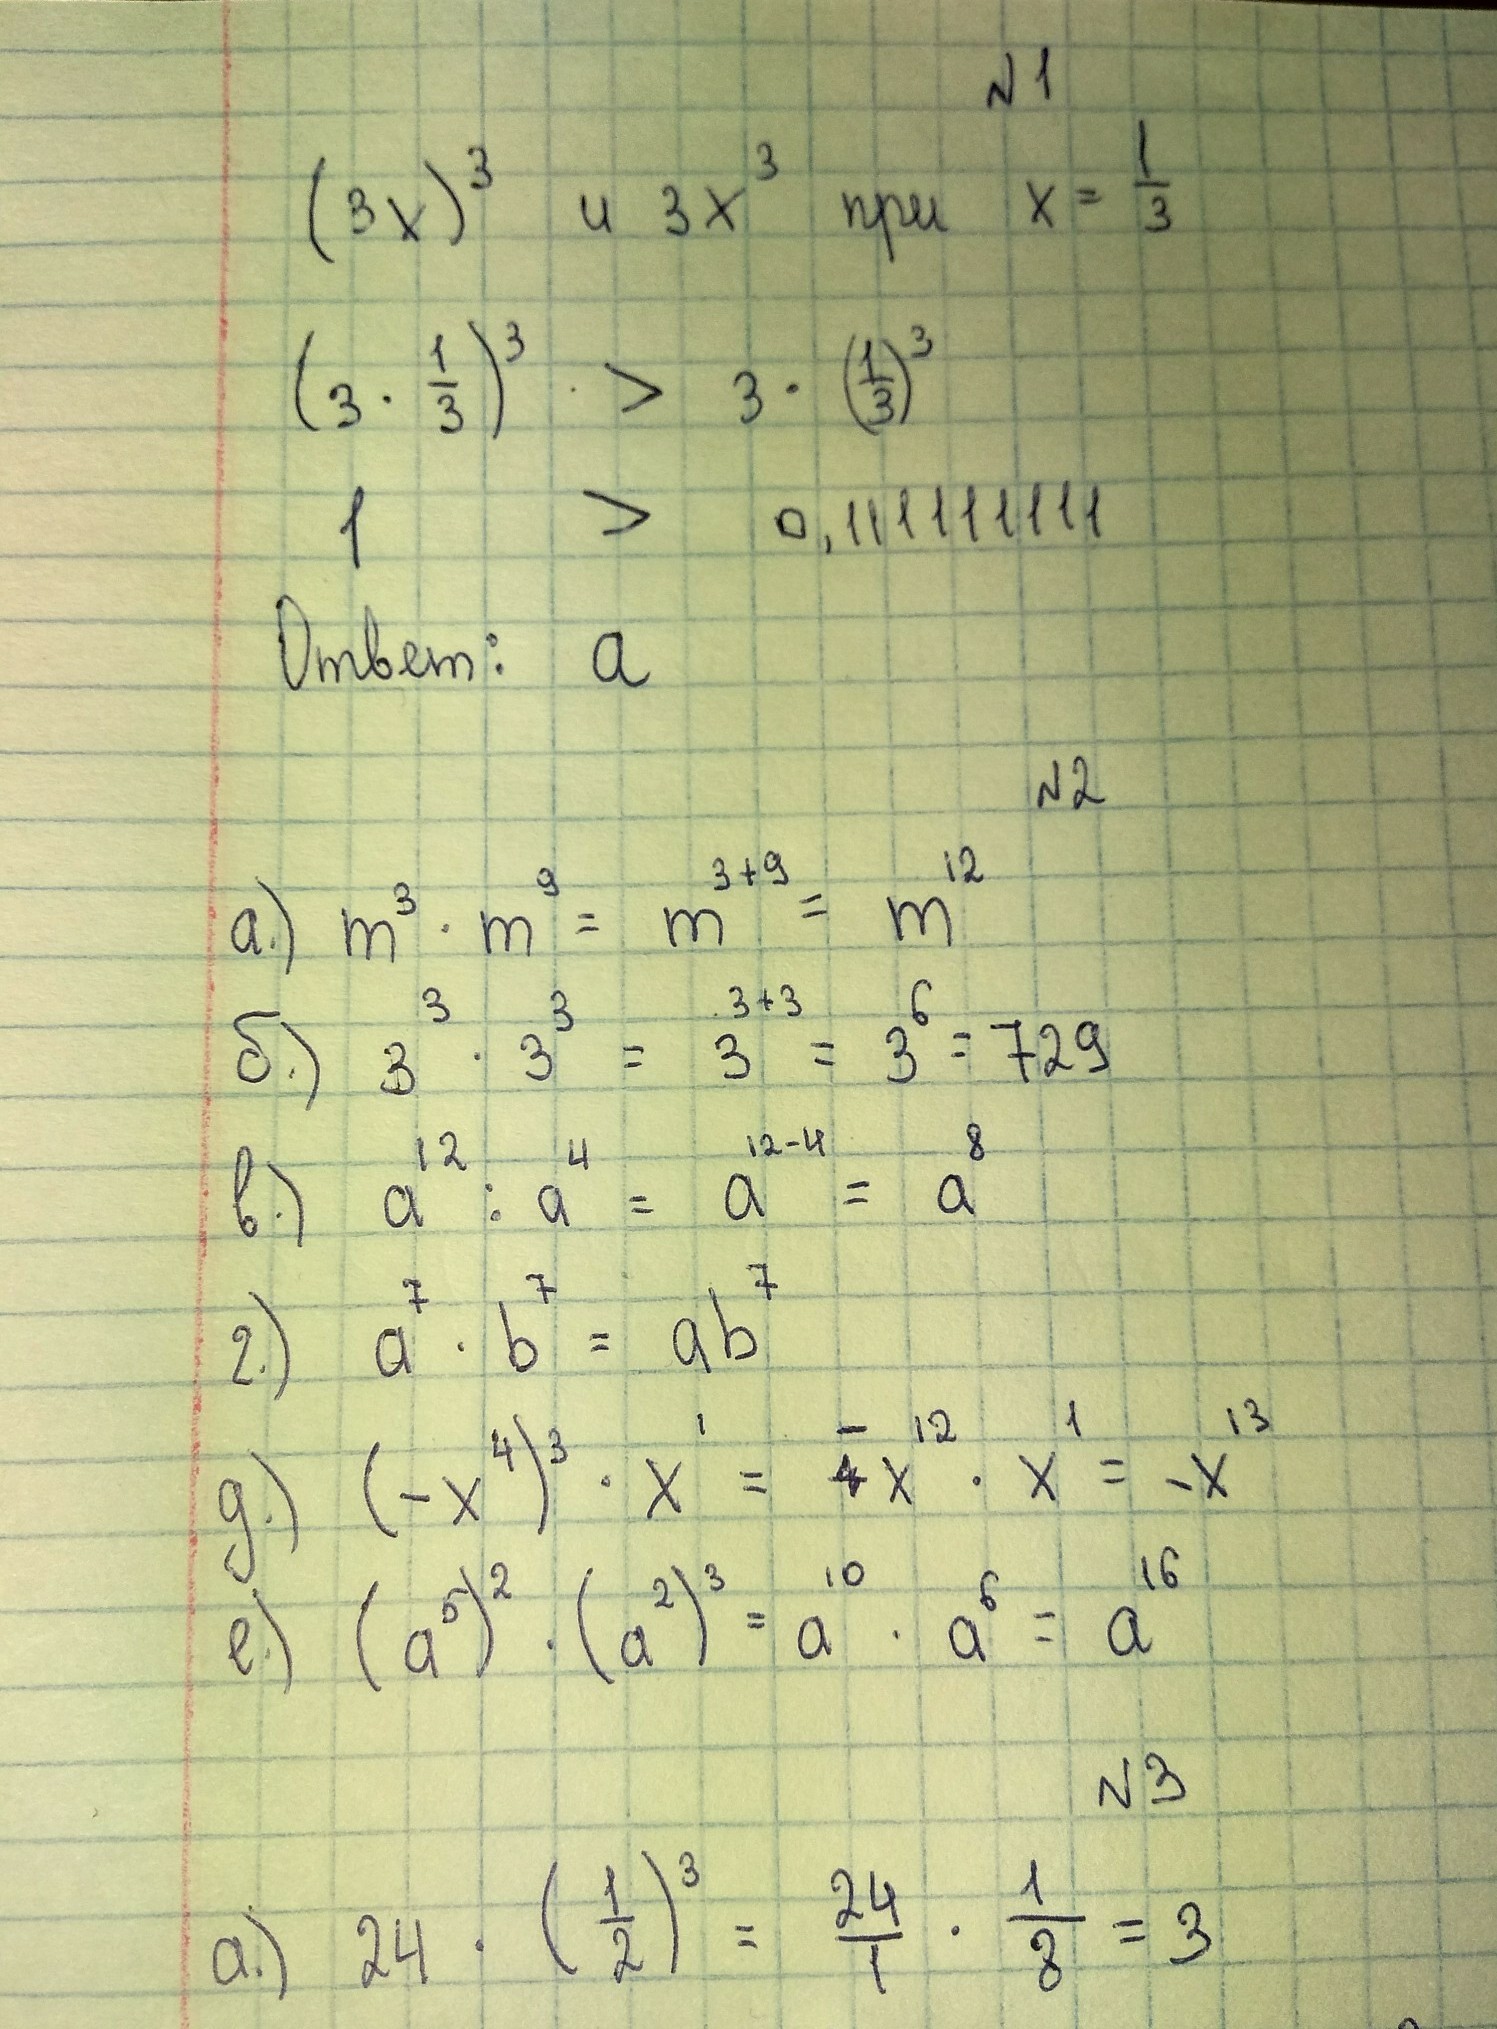 №1
(3x)³ и 3x³ при x = 1/3
(3 · 1/3)³ > 3 · (1/3)³
1 > 0,111111111
Ответ: а
№2
а.) m³ · m⁹ = m³⁺⁹ = m¹²
б.) 3³ · 3³ = 3³⁺³ = 3⁶ = 729
в.) a¹² : a⁴ = a¹²⁻⁴ = a⁸
г.) a⁷ · b⁷ = ab⁷
д.) (-x⁴)³ · x¹ = -x¹² · x¹ = -x¹³
е.) (a⁵)² · (a²)³ = a¹⁰ · a⁶ = a¹⁶
№3
а.) 24 · (1/2)³ = 24/1 · 1/8 = 3